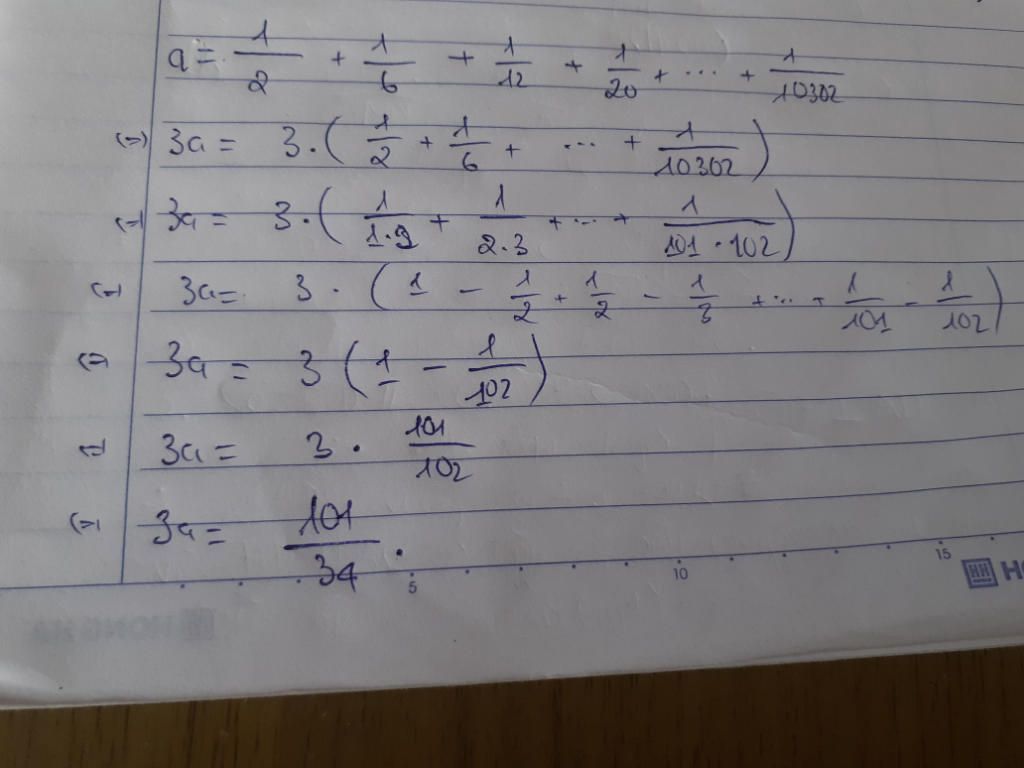 a = 1/2 + 1/6 + 1/12 + 1/20 + ... + 1/10302
(=) 3a = 3.(1/2 + 1/6 + ... + 1/10302)
(=) 3a = 3.(1/1.2 + 1/2.3 + ... + 1/101.102)
(=) 3a = 3.(1 - 1/2 + 1/2 - 1/3 + ... + 1/101 - 1/102)
(=) 3a = 3(1 - 1/102)
(=) 3a = 3. 101/102
(=) 3a = 101/34.
5 10 15
HH HO
HONG HA